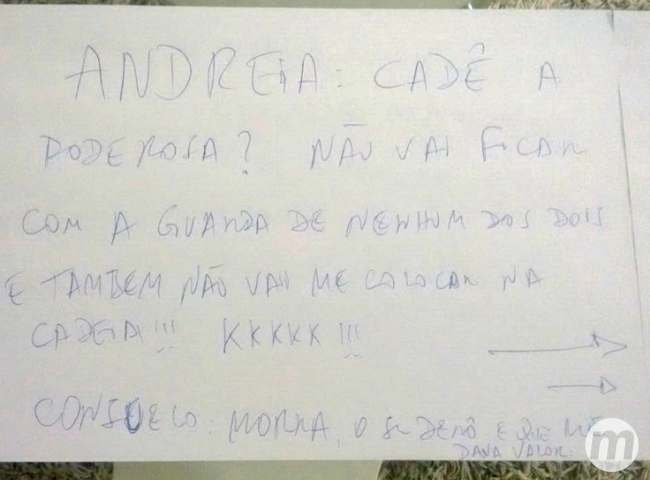 ANDREIA: CADÊ A
PODEROSA? NÃO VAI FICAR
COM A GUARDA DE NENHUM DOS DOIS
E TAMBEM NÃO VAI ME COLOCAR NA
CADEIA!!! KKKKK!!!
CONSUELO: MORRA, O É QUE
DAVA VALOR
m